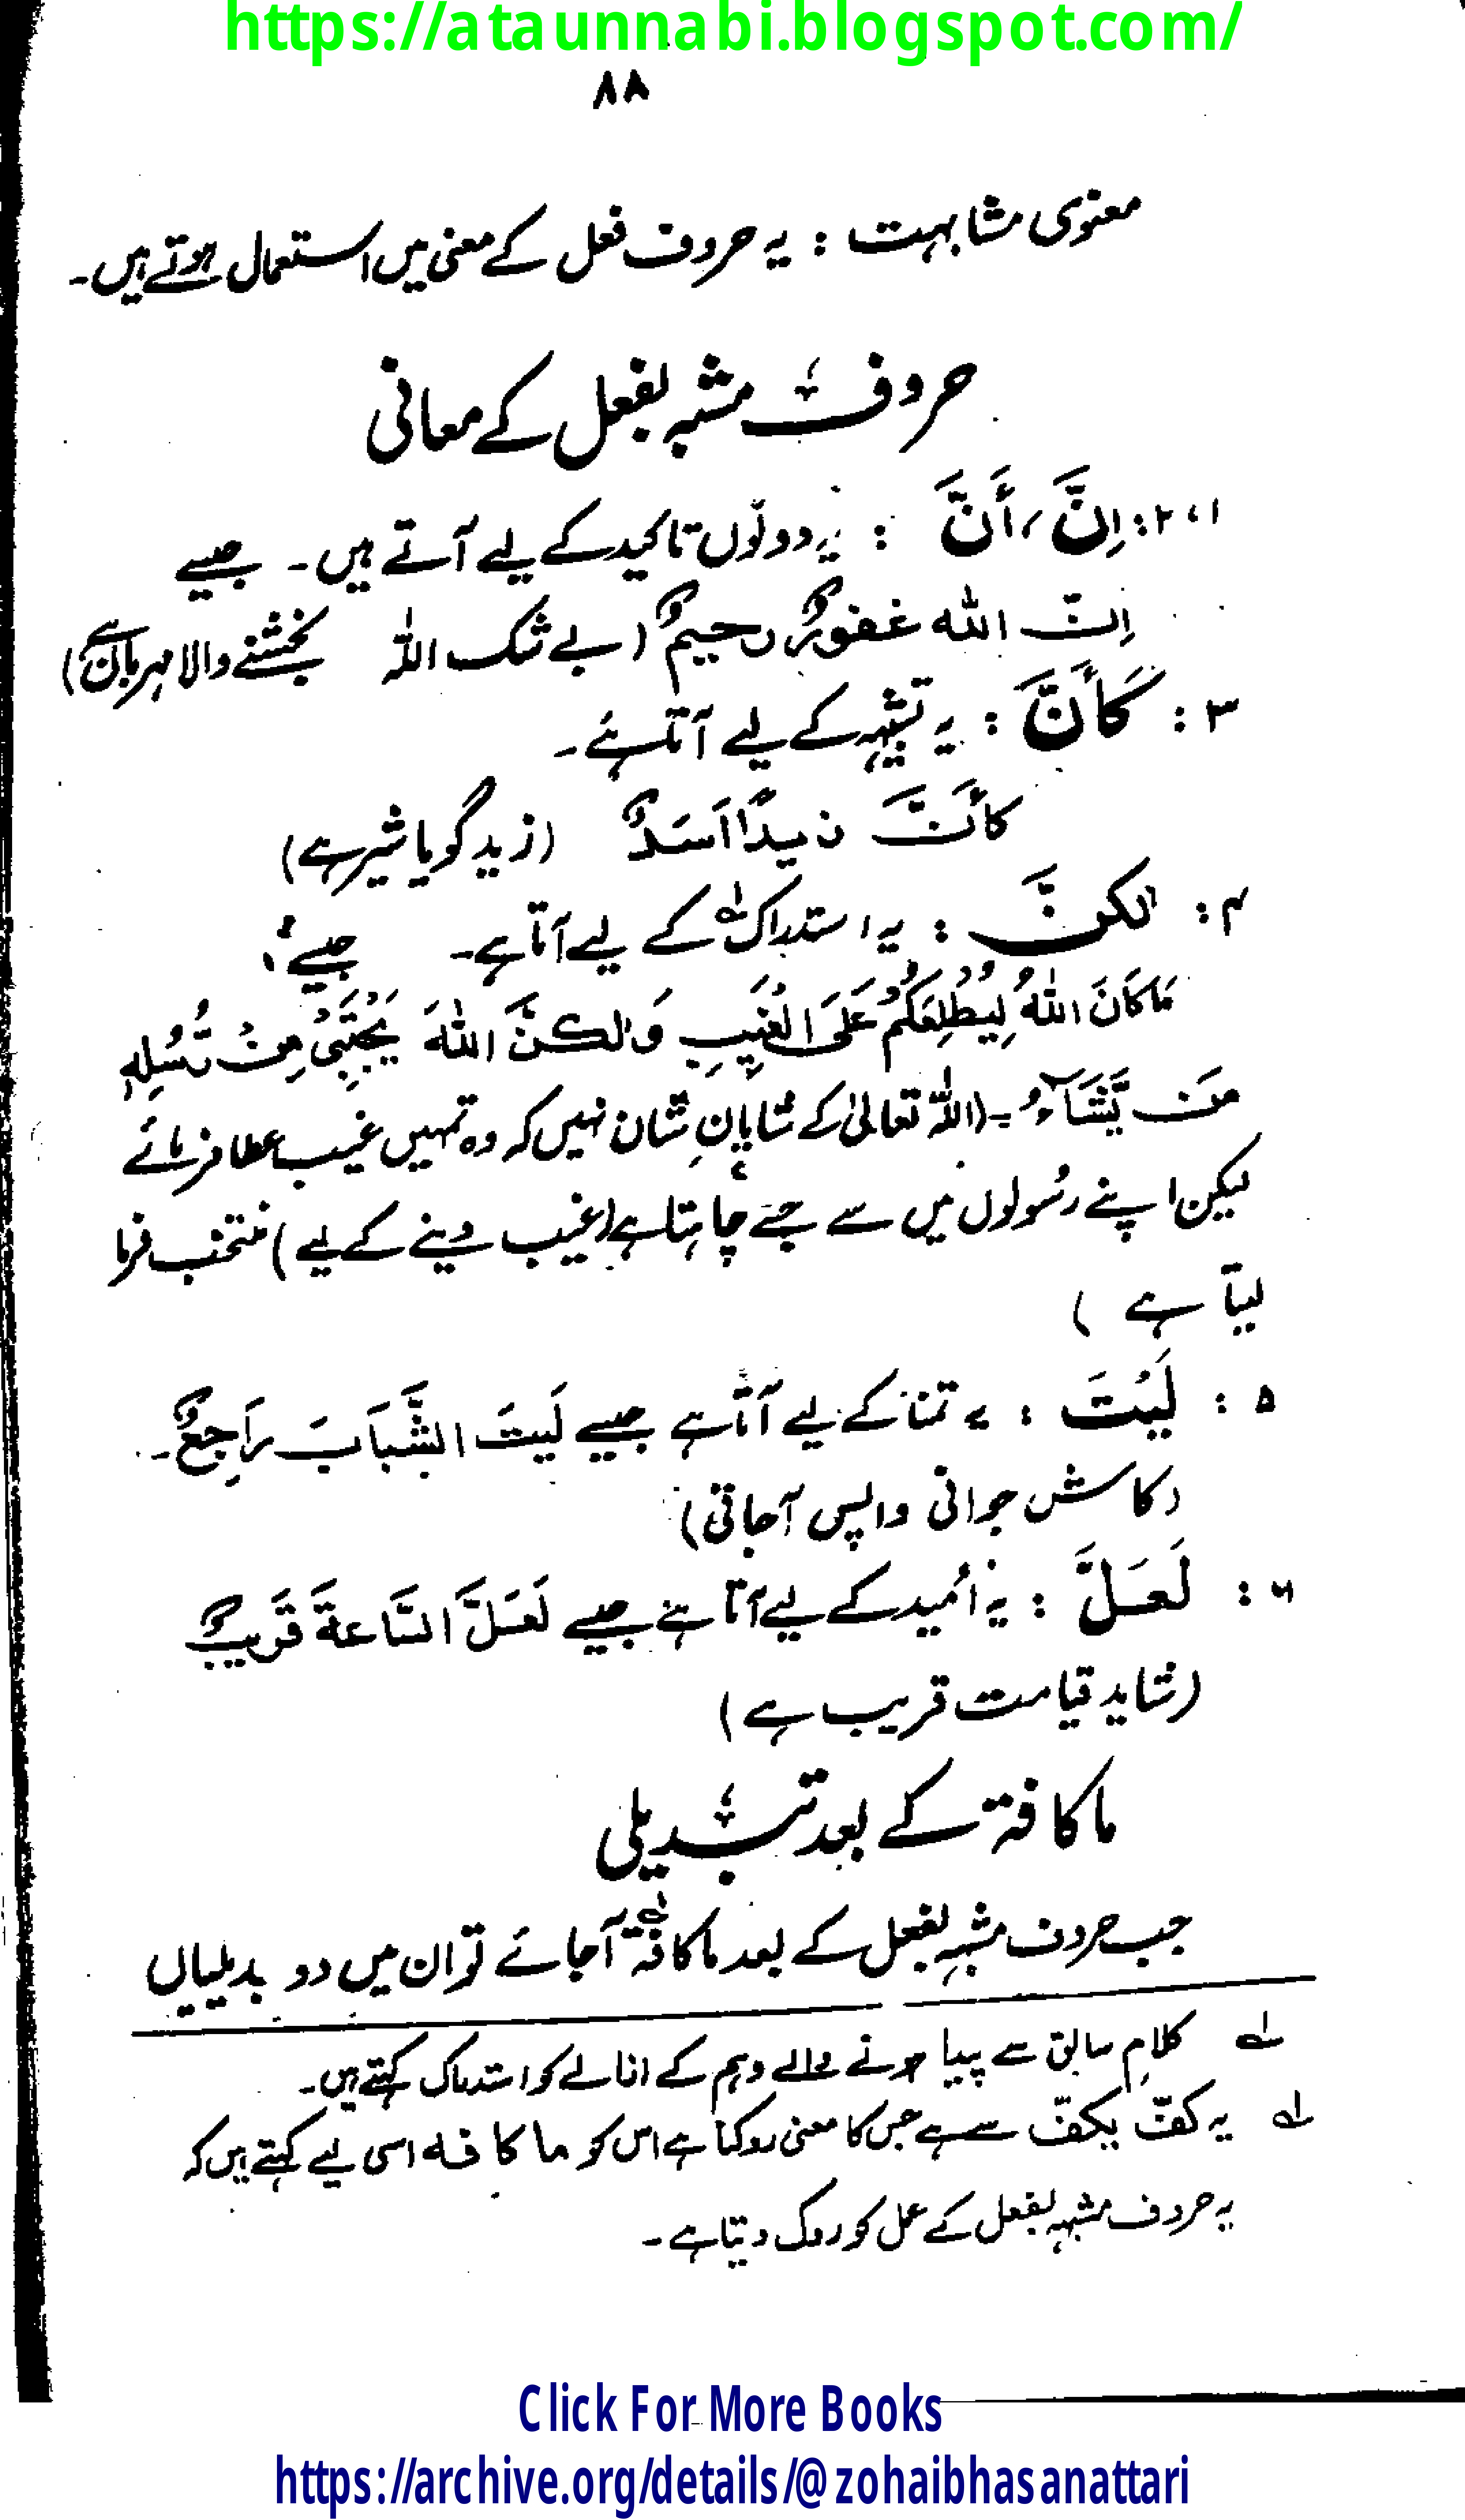 https://ataunnabi.blogspot.com/
۸۸
معنوی مشابہت : یہ حروف فعل کے معنی میں استعمال ہوتے ہیں۔
حروف مشبہ بفعل کے معانی
۱، ۲: اِنَّ، أَنَّ : یہ دونوں تاکید کے لیے آتے ہیں۔ جیسے
اِنّ اللہ غفورٌ رحیمٌ (بے شک اللہ بخشنے والا مہربان ہے)
۳ : کَأَنَّ : یہ تشبیہ کے لیے آتا ہے۔
کأَنَّ زیدًا اَسَدٌ (زید گویا شیر ہے)
۴ : لٰکنَّ : یہ استدراک لہ کے لیے آتا ہے۔ جیسے :
مَاکَانَ اللہُ لِیُطْلِعَکُمْ عَلَی الْغَیْبِ وَلٰکنَّ اللہَ یَجْتَبِیْ مِنْ رُّسُلِہٖ
مَنْ یَّشَآءُ ۔ (اللہ تعالیٰ کے شایانِ شان نہیں کہ وہ تمہیں غیب عطا فرمائے
لیکن اپنے رسولوں میں سے جسے چاہتا ہے (غیب دینے کے لیے) منتخب فرما
لیتا ہے )
۵ : لَیْتَ : یہ تمنا کے لیے آتا ہے جیسے لَیتَ الشَّبَابَ رَاجِعٌ۔
(کاش جوانی واپس آجاتی)
۶ : لَعَلَّ : یہ اُمید کے لیے آتا ہے جیسے لَعَلَّ السَّاعةَ قَرِیبٌ
(شاید قیامت قریب ہے)
ما کافۃ کے بعد تبدیلی
جب حروف مشبہ بفعل کے بعد ما کافۃ لہ آجائے تو ان میں دو بدیلیاں
لہ کلامِ سابق سے پیدا ہونے والے وہم کے ازالے کو استدراک کہتے ہیں۔
لہ یہ کفّ یکفّ سے ہے جس کا معنی روکنا ہے اس کو ما کافہ اسی لیے کہتے ہیں کہ
یہ حروف مشبہ بفعل کے عمل کو روک دیتا ہے۔
Click For More Books
https://archive.org/details/@zohaibhasanattari